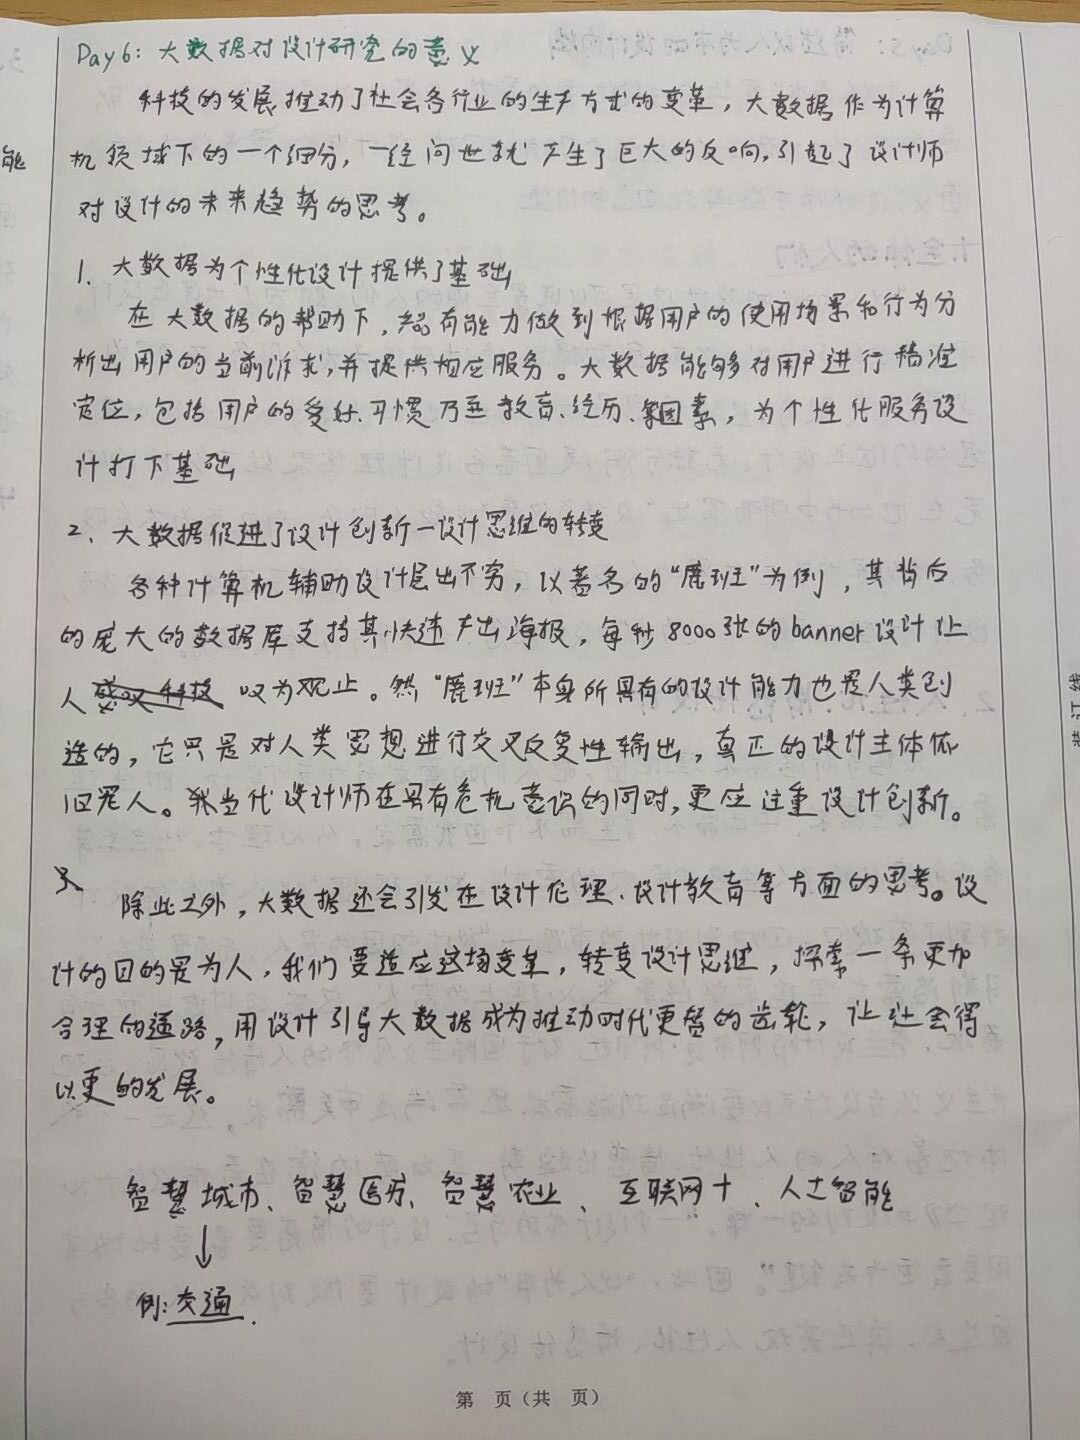 Day 6: 大数据对设计研究的意义
科技的发展推动了社会各行业的生产方式的变革，大数据作为计算
机领域下的一个细分，一经问世就产生了巨大的反响，引起了设计师
对设计的未来趋势的思考。
1、大数据为个性化设计提供了基础
在大数据的帮助下，产品有能力做到根据用户的使用场景和行为分
析出用户的当前诉求，并提供相应服务。大数据能够对用户进行精准
定位，包括用户的爱好、习惯乃至教育、经历、等因素，为个性化服务设
计打下基础
2、大数据促进了设计创新—设计思维的转变
各种计算机辅助设计层出不穷，以著名的“鹿班”为例，其背后
的庞大的数据库支持其快速产出海报，每秒8000张的banner设计让
人叹为观止。然“鹿班”本身所具有的设计能力也是人类创
造的，它只是对人类思想进行交叉反复性输出，真正的设计主体依
旧是人。我当代设计师在具有危机意识的同时，更应注重设计创新。
除此之外，大数据还会引发在设计伦理、设计教育等方面的思考。设
计的目的是为人，我们要适应这场变革，转变设计思维，探索一条更加
合理的道路，用设计引导大数据成为推动时代更替的齿轮，让社会得
以更的发展。
智慧城市、智慧医疗、智慧农业、互联网+、人工智能
↓
例：交通.
第 页（共 页）
能
装订线